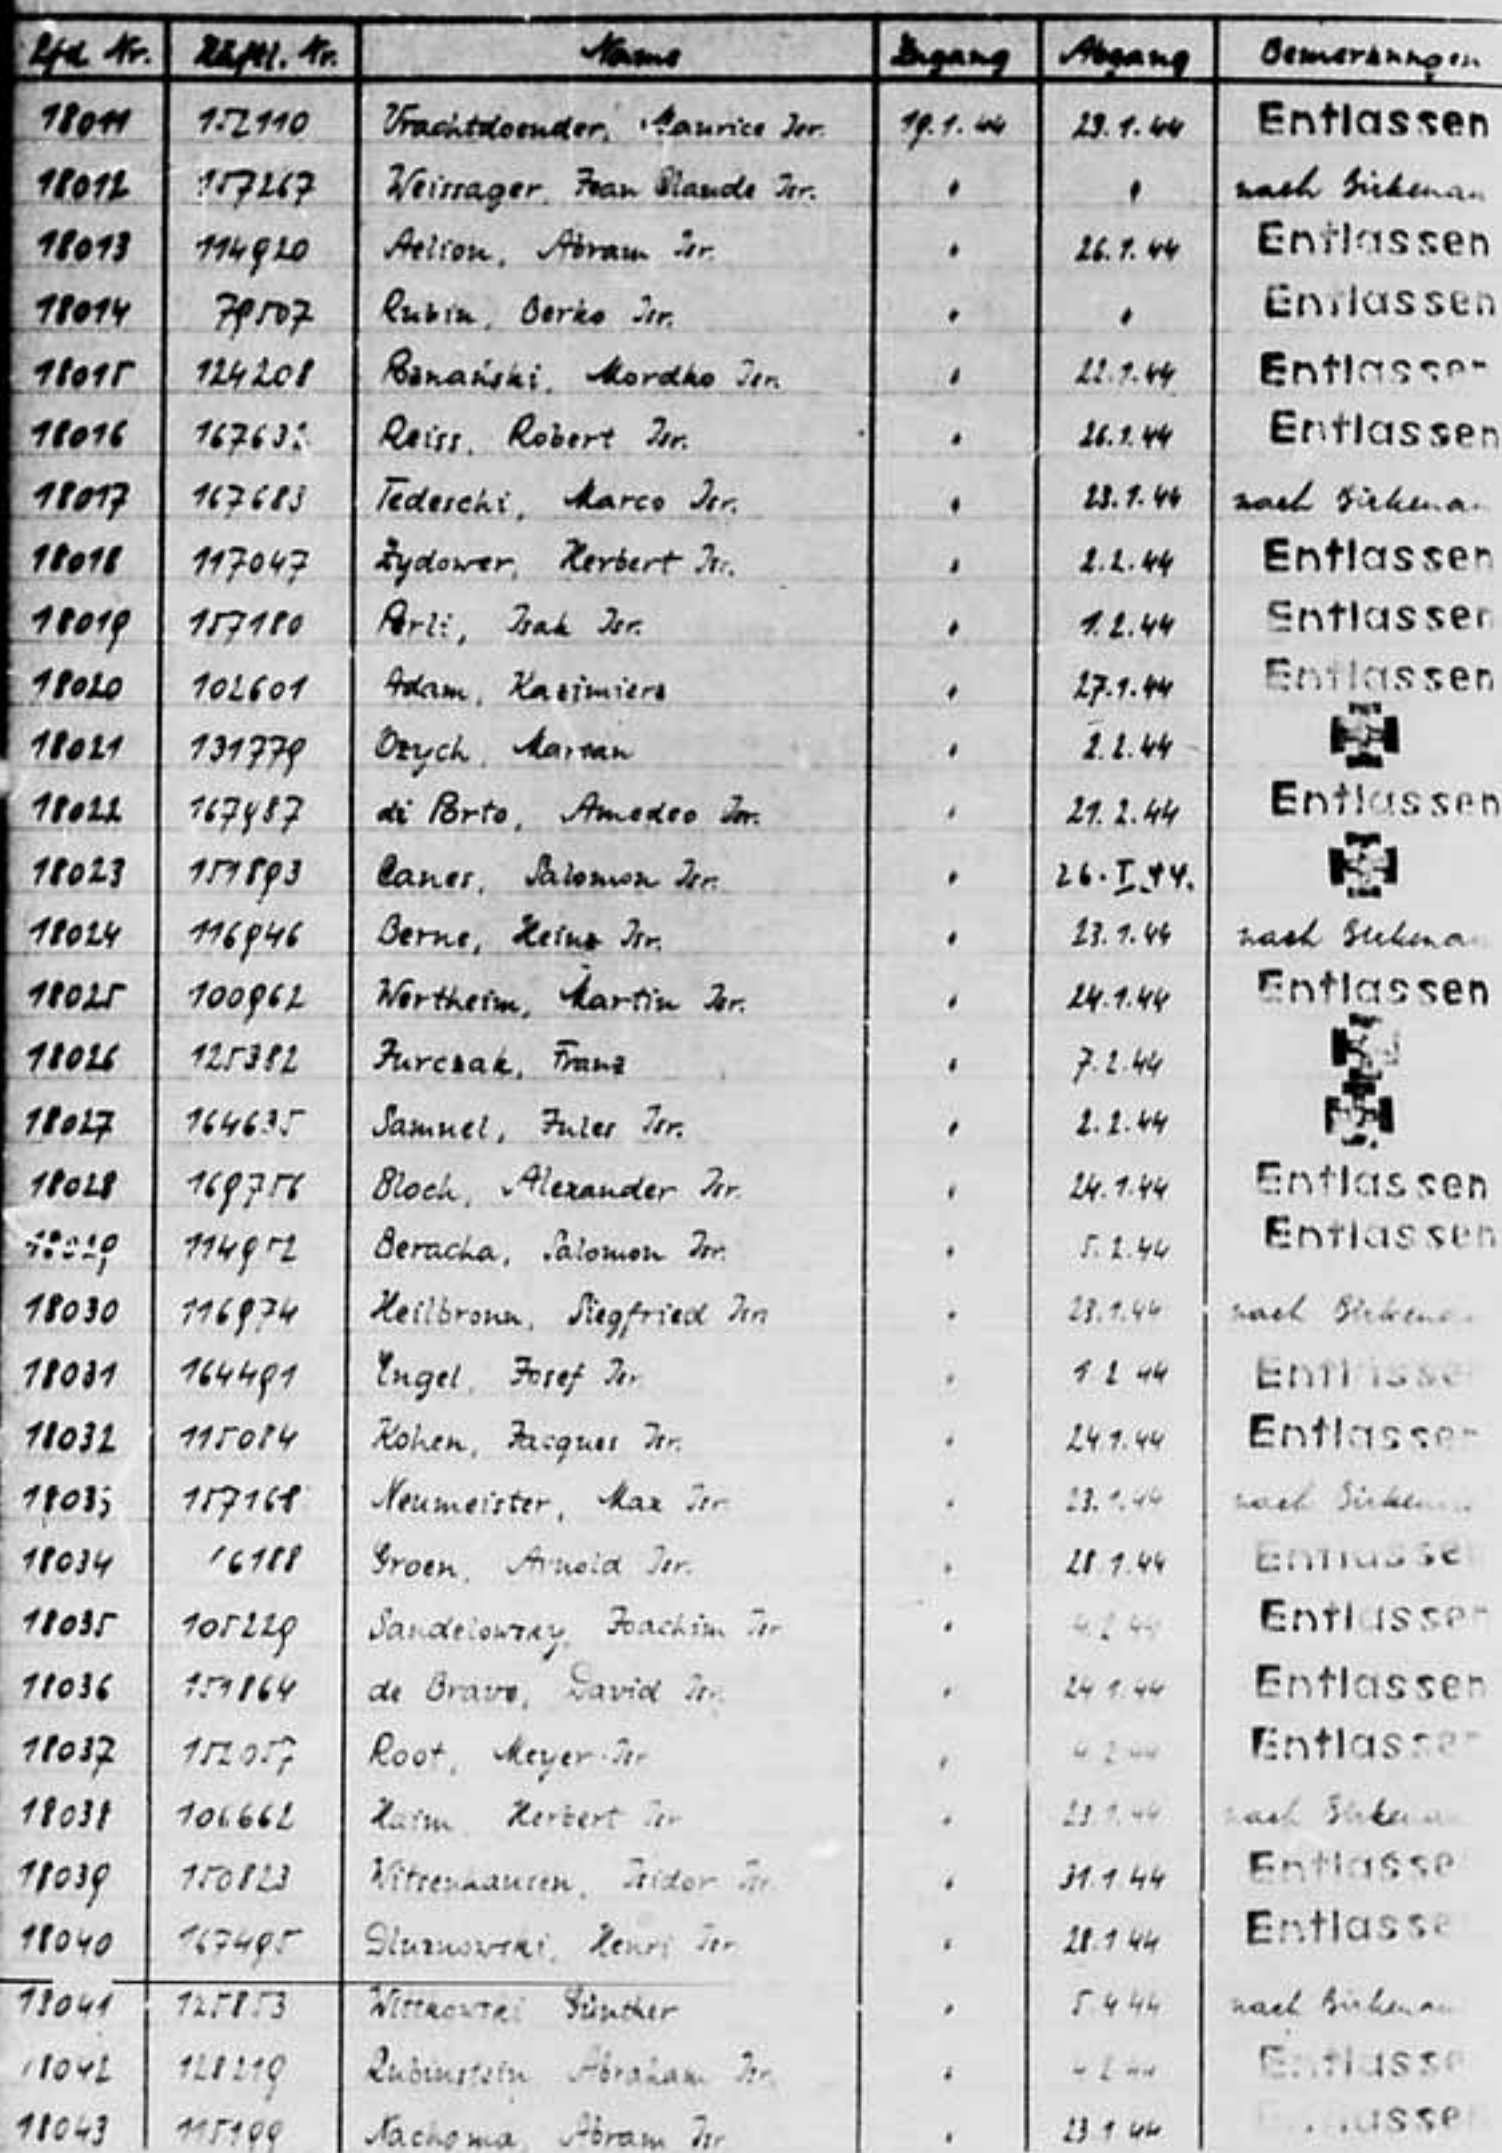 Lfd. Nr. Häftl. Nr. Name Zugang Abgang Bemerkungen
18011 152110 Vrachtdoender, Maurice Isr. 19.1.44 29.1.44 Entlassen
18012 157267 Weissager, Jean Claude Isr. " " nach Birkenau
18013 114920 Aelion, Abram Isr. " 26.1.44 Entlassen
18014 79507 Rubin, Berko Isr. " " Entlassen
18015 124208 Poznański, Mordko Isr. " 22.1.44 Entlassen
18016 Reiss, Robert Isr. " 26.1.44 Entlassen
18017 167683 Tedeschi, Marco Isr. " 23.1.44 nach Birkena
18018 117047 Żydower, Herbert Isr. " 2.2.44 Entlassen
18019 157180 Perli, Isak Isr. " 1.2.44 Entlassen
18020 102601 Adam, Kazimierz " 27.1.44 Entlassen
18021 131779 Ozych, Marian " 2.2.44
18022 167987 di Porto, Amedeo Isr. " 21.2.44 Entlassen
18023 151893 Canes, Salomon Isr. " 26.I.44.
18024 116946 Berne, Heinz Isr. " 23.1.44 nach Birkena
18025 100962 Wertheim, Martin Isr. " 24.1.44 Entlassen
18026 125382 Jurczak, Franz " 7.2.44
18027 164635 Samuel, Jules Isr. " 2.2.44
18028 169756 Bloch, Alexander Isr. " 24.1.44 Entlassen
114952 Beracha, Salomon Isr. " 5.2.44 Entlassen
18030 116974 Heilbronn, Siegfried Isr. " 23.1.44 nach Birkena
18031 164491 Engel, Josef Isr. " 1.2.44 Entlasse
18032 115084 Kohen, Jacques Isr. " 24.1.44 Entlassen
18033 157168 Neumeister, Max Isr. " 23.1.44 nach Birkenau
18034 Groen, Arnold Isr. " 28.1.44 Entlasse
18035 105229 Sandelowsky, Joachim Isr. " 4.2.44 Entlassen
18036 151864 de Bravo, David Isr. " 24.1.44 Entlassen
18037 152057 Root, Meyer Isr. " 4.2.44 Entlassen
18038 106662 Haim Herbert Isr. " 23.1.44 nach Birkenau
18039 150823 Witzenhausen, Isidor Isr. " 31.1.44 Entlasse
18040 167495 Gluznowski, Henri Isr. " 28.1.44 Entlasse
18041 125853 Wittkowski Günther " 5.4.44 nach Birkenau
18042 128219 Rubinstein Abraham Isr. " 4.2.44 Entlasse
18043 115199 Nachoma, Abram Isr. " 23.1.44